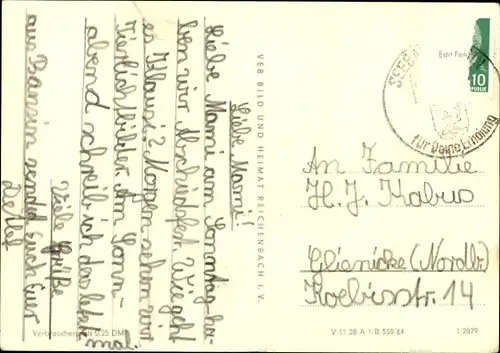 Liebe Mami!
Liebe Mami am Sonntag ha-
ben wir Abschiedsfest. Wie geht
es Klausi? Morgen sehen wir
Tierlichtbilder. Am Sonn-
abend schreib ich das letzte
mal.
Viele Grüße
aus Bansin sendet Euch Euer
Detlef
Verbraucherpreis 0,25 DM
VEB BILD UND HEIMAT REICHENBACH I. V.
Echt Foto
10
SEEBAD
für Deine Erholung
An Familie
H. J. Kabus
Glienicke (Nordb.)
Koebisstr. 14
V 11 28 A 1/B 559/64
1/2879